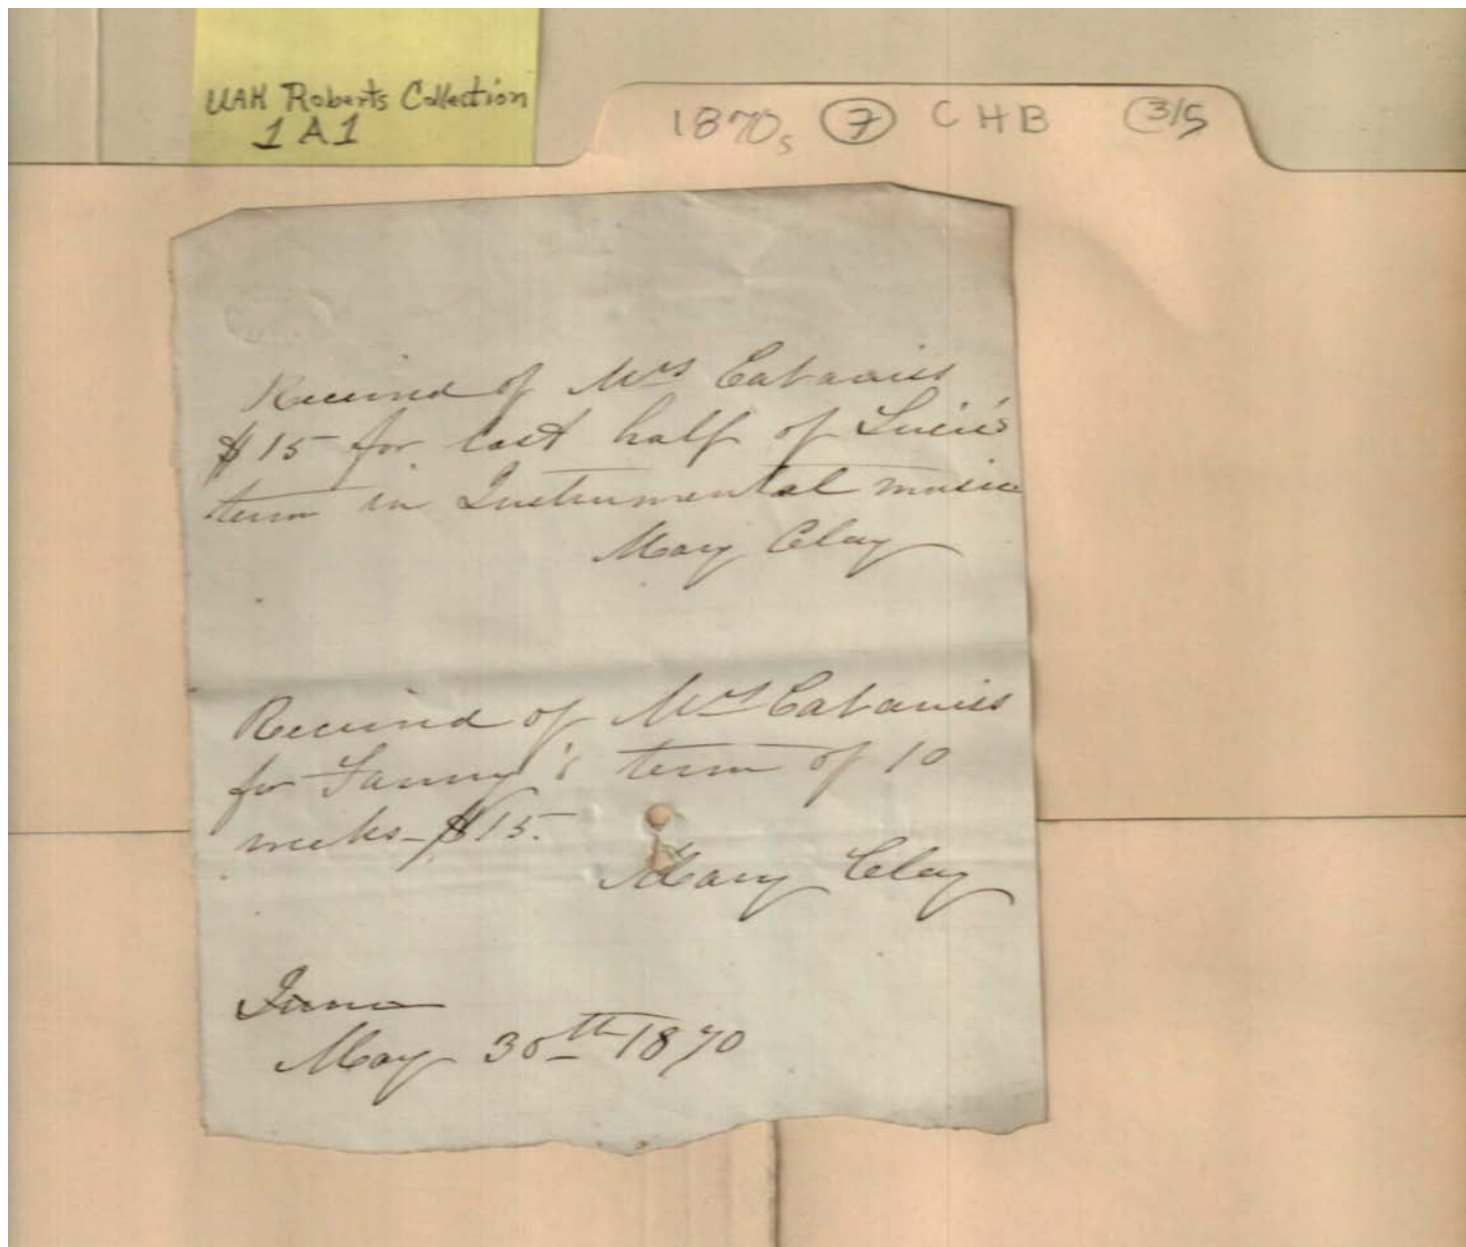 UAH Roberts Collection
1A1
1870s 7 CHB 3/5
Received of Mrs Cabaniss
$15 for last half of Lucie's
term in Instrumental music
Mary Clay
Received of Mrs Cabaniss
for Fanny's term of 10
weeks - $15.
Mary Clay
June
May 30th 1870